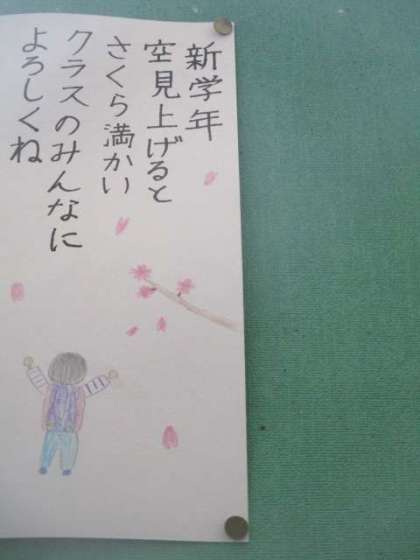 新学年
空見上げると
さくら満かい
クラスのみんなに
よろしくね